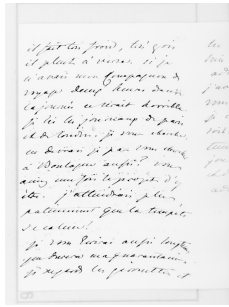 il fait très froid, très gris
il pleut à verse. si je
n'avais mon compagnon de
voyage deux heures dans
la journée ce serait horrible
je lis les journaux de paris
et de londres. je vous cherche
ne devrais je pas vous chercher
à Boulogne aussi? vous
aviez une fois le projet d'y
être. j'attendrais plus
patiemment que la tempête
se calme!
je vous écrirai aussi longtems
que durera ma quarantaine.
je regarde les girouettes et